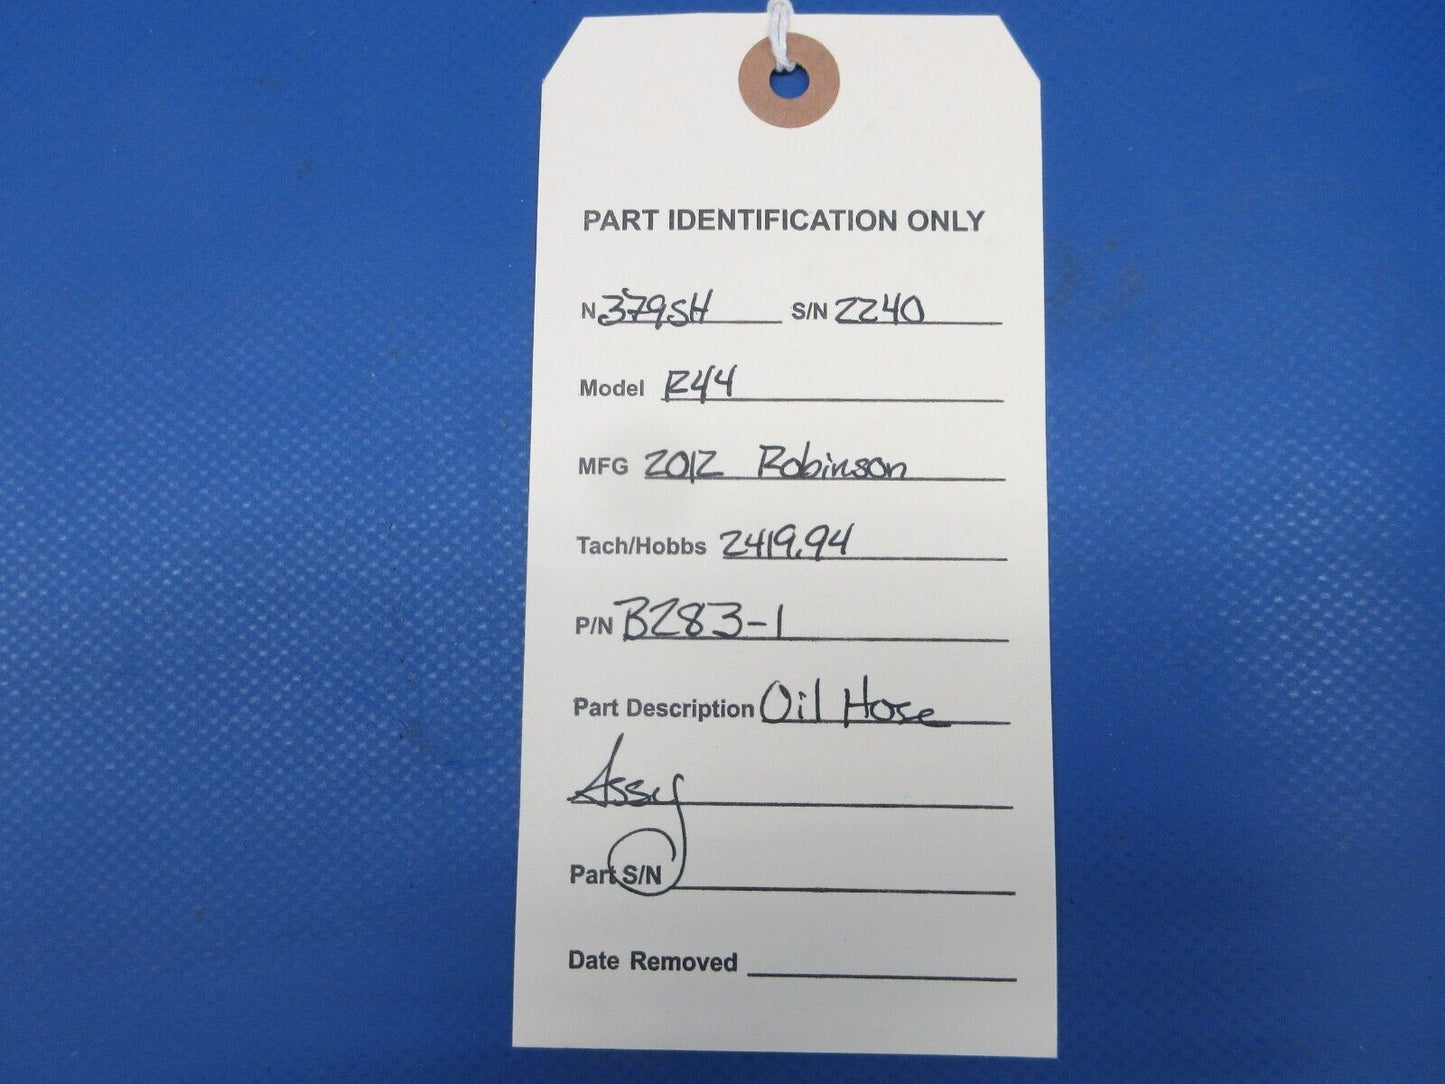 PART IDENTIFICATION ONLY
N 379SH S/N 2240
Model R44
MFG 2012 Robinson
Tach/Hobbs 2419.94
P/N B283-1
Part Description Oil Hose
Assy
Part S/N
Date Removed